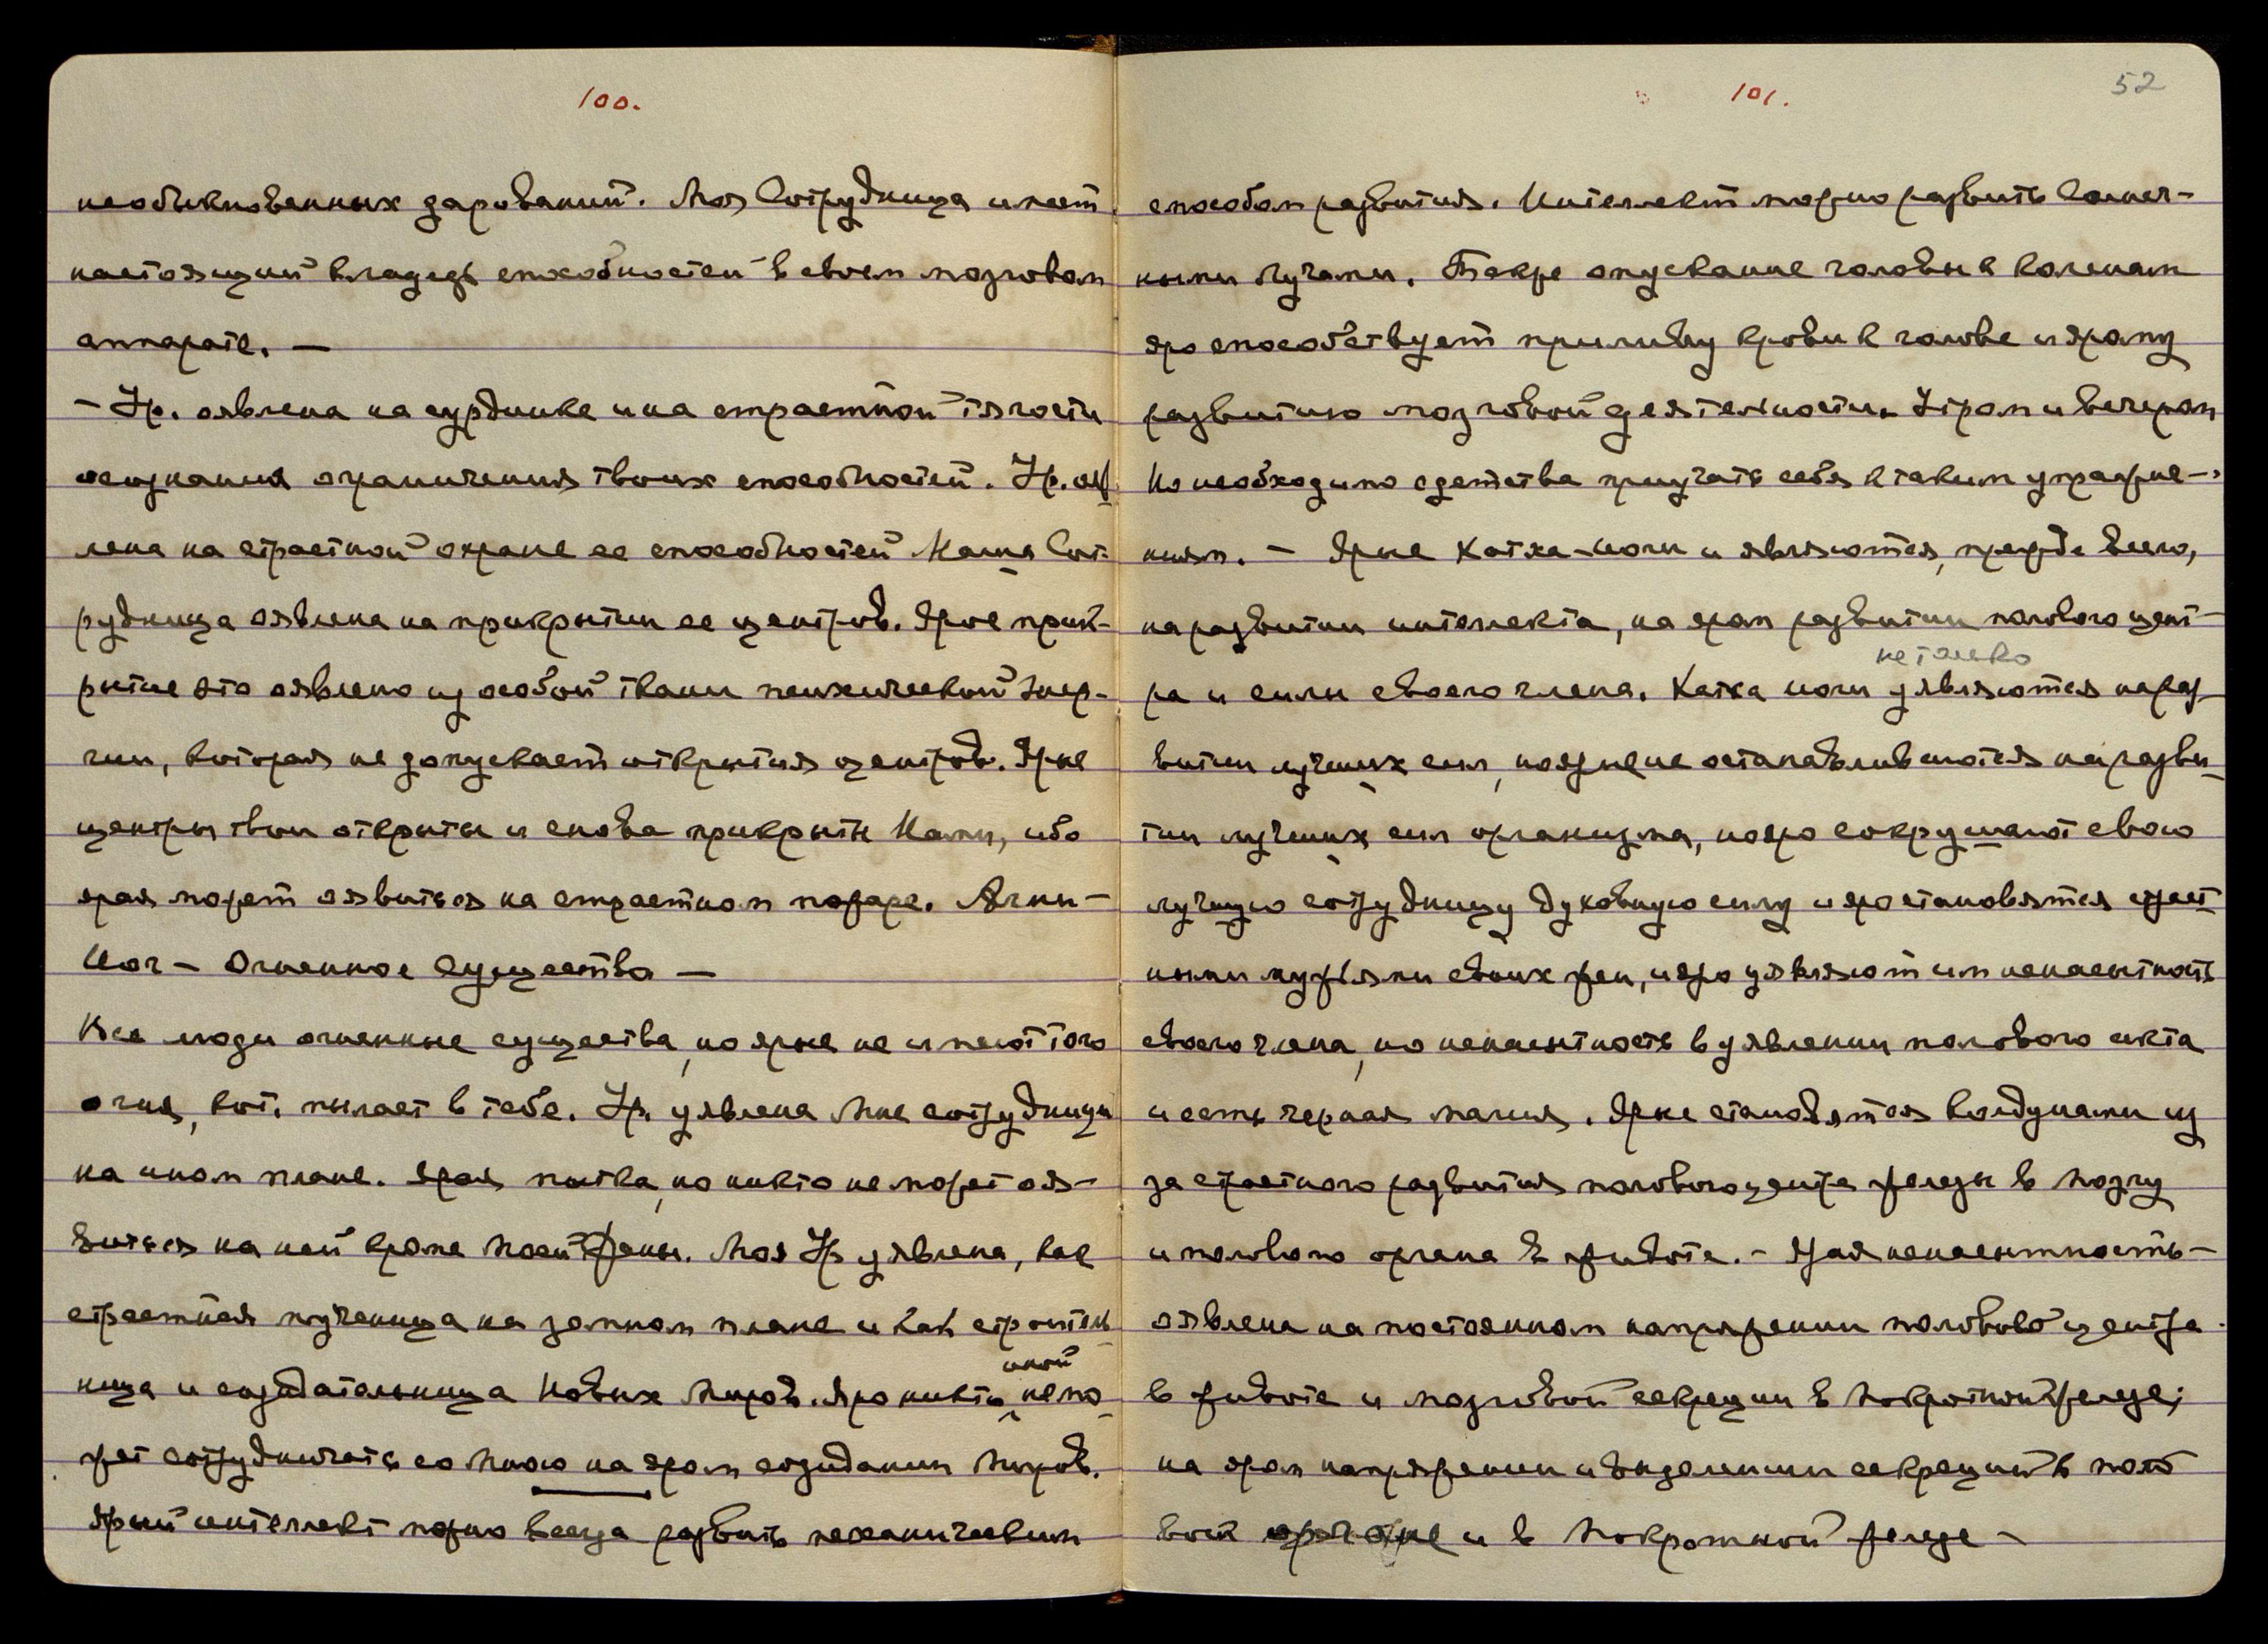 100.
необыкновенных дарований. Моя Сотрудница имеет
настоящий кладезь способностей в своем мозговом
аппарате. —
— Ур. оявлена на сурдинке и на страстной тягости
осознания ограничения твоих способностей. Ур. ояв
лена на страстной охране ее способностей Наша Сот-
рудница оявлена на прикрытии ее центров. Ярое прик-
рытие это оявлено из особой ткани психической энер-
гии, которая не допускает открытия центров. Ярые
центры твои открыты и снова прикрыты Нами, ибо
ярая может оявиться на страстном пожаре. Агни-
Йог — Огненное Существо —
Все люди огненные существа, но ярые не имеют того
огня, кот. пылает в тебе. Ур. уявлена Мне сотрудницей
на ином плане. Ярая пытка, но никто не может оя-
виться на ней кроме Моей Жены. Моя Ур уявлена, как
страстная мученица на земном плане и как строитель
ница и создательница Новых Миров. Яро никто иной не мо
жет сотрудничать со Мною на яром созидании Миров.
Ярый интеллект можно всегда развить механическим
101.
52
способом развития. Интеллект можно развить Солнеч-
ными Лучами. Также опускание головы к коленам
яро способствует приливу крови к голове и ярому
развитию мозговой деятельности Утром и вечером
Но необходимо с детства приучать себя к таким упражне-
ниям. — Ярые Хатха-Йоги и являются, прежде всего,
на развитии интеллекта, на яром развитии полового цент-
ра и силы своего члена. Хатха йоги не только уявляются на раз
витии лучших сил, но ярые не останавливаются на разви
тии лучших сил организма, но яро сокрушают свою
лучшую сотрудницу духовную силу и яро становятся страст
ными мужьями своих жен, и яро уявляют им ненасытность
своего члена, но ненасытность в уявлении полового акта
и есть черная магия. Ярые становятся колдунами из
за страстного развития полового центра железы в мозгу
и полового органа в животе. — Ярая ненасытность —
оявлена на постоянном напряжении полового центра
в животе и мозговой секреции в Мокротной железе;
на яром напряжении и выделении секреций в поло
вом органе и в Мокротной железе —